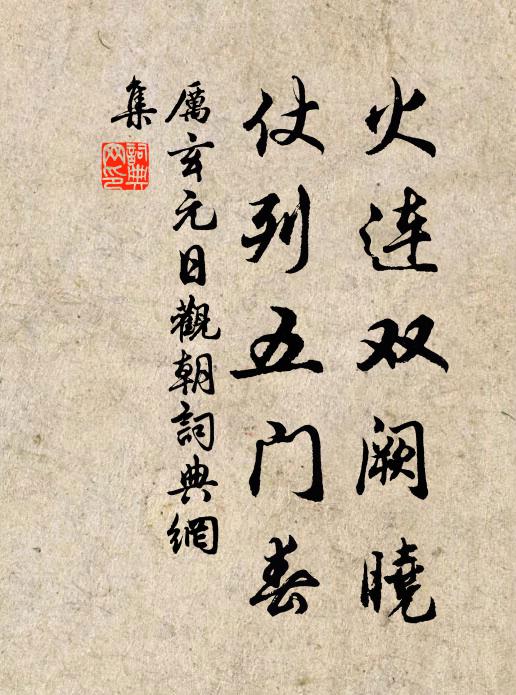 火连双阙曉
仗列五门春
厲玄元日觀朝詞典網
集
詞典網印